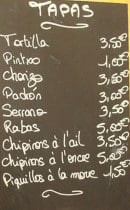 TAPAS
Tortilla 3,50€
Pintxo 1,60€
Chorizo 3,50€
Padrón 3,50€
Serrano 3,50€
Rabas 5,50€
Chipirons à l'ail 3,50€
chipirons à l'encre
Piquillos à la morue 1,50€